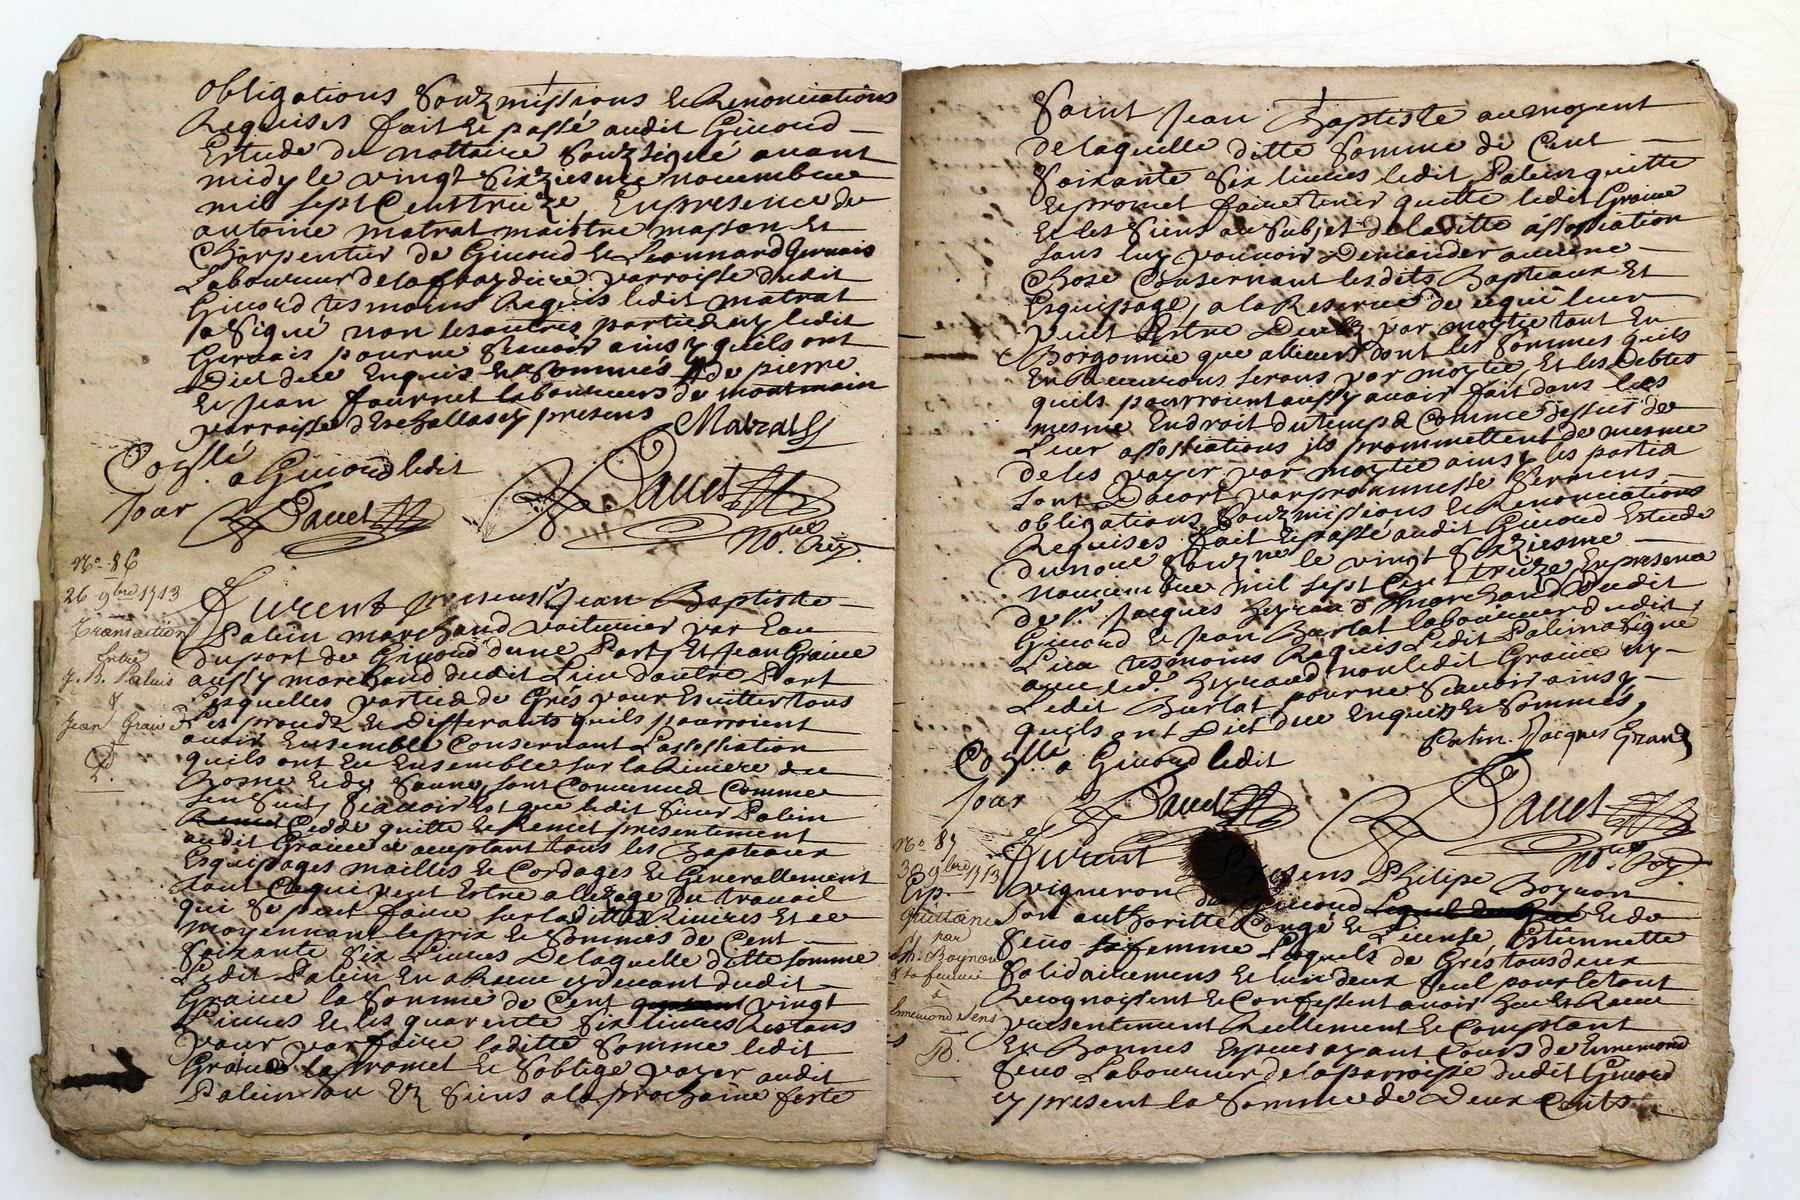 obligations souzmissions et Renonciations
Requises fait et passé audit Giuord
Estude du nottaire souzsigné auant
midy le vingt sixziesme nouembre
mil sept Cent treize En presence de
antoine matrat maistre masson Et
Charpentier de Giuord et Leonnard Geruais
Laboureur de parroisse dudit
Giuord tesmoins Requis ledit matrat
a signé non les autres parties ny ledit
Geruais pour ne sçauoir ainsy quils ont
Dict due Enquis et sommés de pierre
et Jean fournel laboureurs de montmain
parroisse d'Eschallassy presens Matrat
Coyllé
a Giuord ledit
jour
Dauet
Dauet
No.re Roy.
No. 86
26 9bre 1713
Transaction
Entre
J. B. Palin
&
Jean Graue
Furent presens Sr Jean Baptiste
Palin marchand voiturier par Eau
du port de Giuord d'une Part, Et Jean Graue
aussy marchand dudit Lieu dautre Part
Lesquelles parties de Grés pour Esuitter tous
Les proucez et Differants quils pourroient
auoir Ensemble Consernant Lassossiation
quils ont Eu Ensemble sur la Riuiere du
Rosne et de Saune, sont Conuenus Comme
sensuit, sçauoir est que ledit sieur Palin
Cedde quitte et Remet presentement
audit Graue acceptant tous les Bapteaux
Esquipages mailles et Cordages et Generallement
tout Cequi peut Estre a lusage du trauail
qui se peut faire sur laditte Riuiere Et ce
moyennant le prix et sommes de Cent
soixante six Liures De laquelle ditte somme
ledit Palin En a Receu cydeuant dudit
Graue la somme de Cent vingt
Liures et les quarente six liures Restans
pour parfaire laditte somme ledit
Graue la promet et soblige payer audit
Palin ou Ez siens a la prochaine feste
Saint Jean Baptiste au moyent
de laquelle ditte somme de Cent
soixante six liures ledit Palin quitte
et promet faire tenir quitte ledit Graue
Et les siens au subjet de laditte assossiation
sans luy pouuoir Demander aucune
Chose Consernant lesdits Bapteaux Et
Esquipage, a la Reserue de cequi leur
peut Estre Deubz par moytie tant En
Borgonnie que allieurs dont les sommes quils
En Receurons serons par moytie, Et les Debtes
quils pourroient aussy auoir fait dans les
mesme Endroit du temps Comme dessus de
Leur assossiations jls prommettent de mesme
de les payer par moytie ainsy les parties
sont Dacort par prommesse sermens
obligations souzmissions et Renonciations
Requises fait et passé audit Giuord Estude
du no.re souz.ne le vingt sixziesme
nouembre mil sept Cent treize En presence
de Sr Jacques marchand dudit
Giuord et Jean Burlat laboureur dudit
Lieu tesmoins Requis Ledit Palin a signé
auec led. non ledit Graue ny
Ledit Burlat pour ne sçauoir ainsy
quils ont Dict due Enquis et sommés,
Palin Jacques
Coyllé a Giuord ledit
jour
Dauet
Dauet
No.re Roy.
No. 87
30 9bre 1713
quittance
par
Ph. Boyron
& sa femme
à
Ennemond seno
Furent presens Philipe Boyron
vigneron de Giuord Et de
son authoritte Congé et License, Estiennette
seno sa femme Lesquels de Grés tous deux
solidairemens et lun deux seul pour le tout
Recognoissent et Confessent auoir heu et Receu
presentement Reellement et Comptant
En Bonnes Especes ayant Cours de Ennemond
seno Laboureur de la parroisse dudit Giuord
cy present la somme de Deux Cents